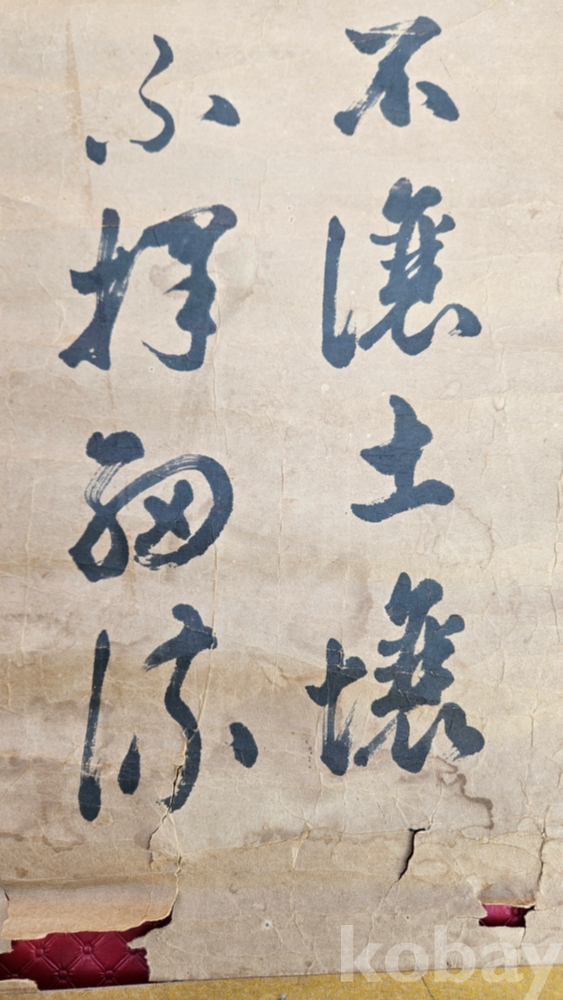 不讓土壤
不擇細流
kobay